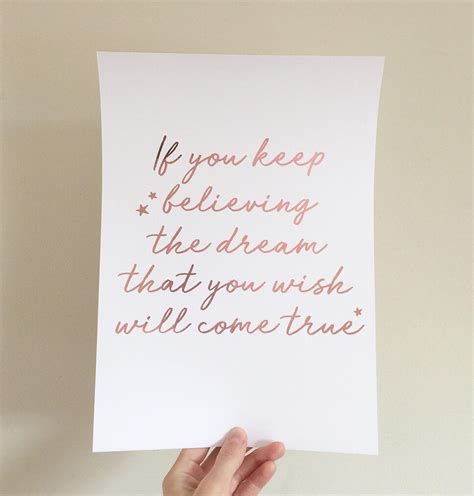 If you keep
believing
the dream
that you wish
will come true